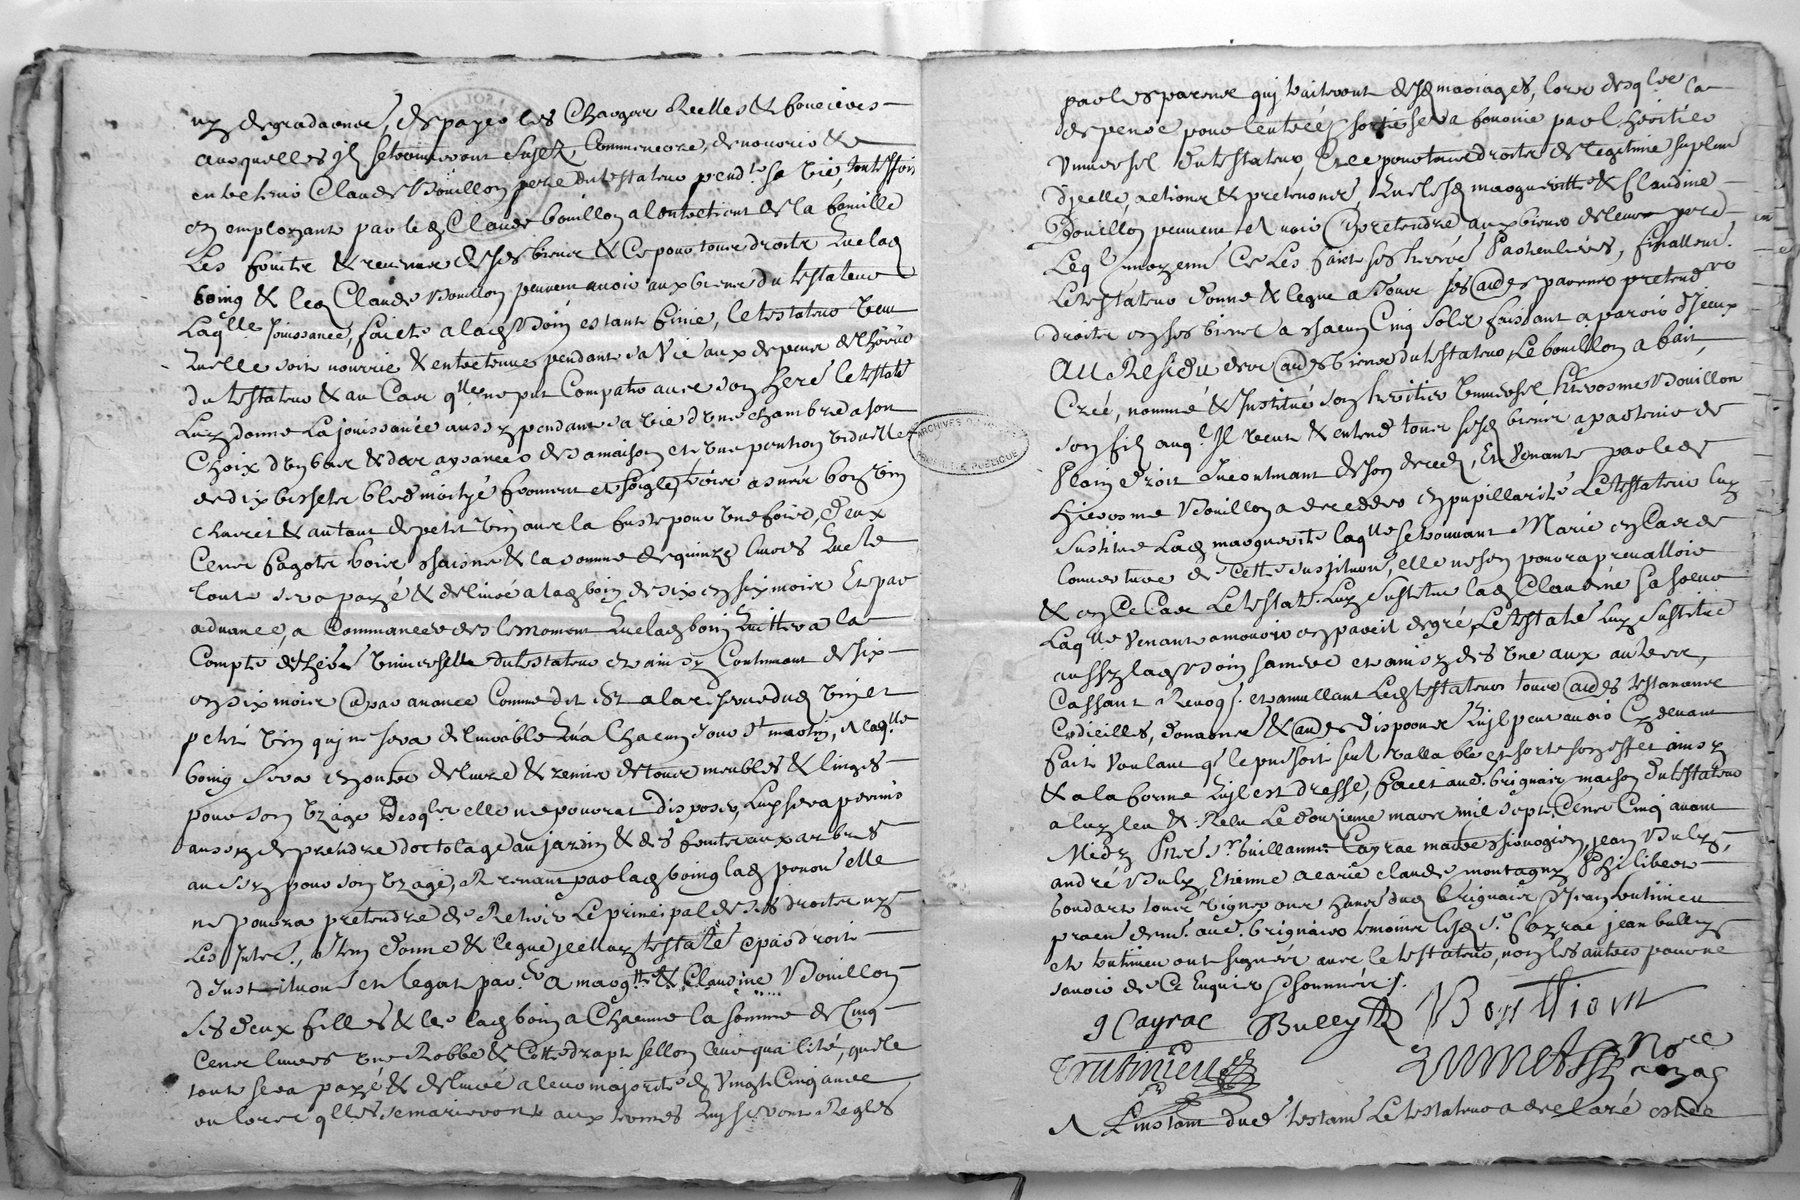 ny degradaōns, de payer les Charges Reelles & foncieres
ausquelles ils setrouveront sujets, Commencera, de nourir &
entretenir Claude Bouillon pere du testateur pend.t sa vie, touteffois
en employant par led Claude bouillon alentretient de la famille
Les fruits & revenus de ses biens & Ce pour tous droits que lad
boing & led Claude Bouillon peuvent avoir aux biens du testateur
Laq.lle jouissance, faicte a lad boin estant finie, le testateur veut
quelle soit nourrie & entretenue pendant sa Vie aux depens de lhoirie
du testateur & au Cas q.lle ne put Compatir avec son here le testat.r
Luy donne La jouissance aussy pendant sa vie dune chambre a son
Choix dembas & des aysances de sa maison et une pention viduelle
de dix bissets bled moityé froment et seigle, trois asnés bon vin
clairet & autant de petit vin avec la fuste pour une fois, deux
Cens fagots bois chasne & la somme de quinze livres que le
tout sera payé & delivré a lad boin de six en six mois Et par
advance, a Commancer des le moment que lad boin quittera la
Compte de lhere universelle du testateur et ainsy Continuant de six
en six mois & par avance Comme dit est a la reserve dud vin et
petit vin qui ne sera delivrable qua Chacun jour St martin, A laq.lle
boing sera en outre delivré & remis de tous meubles & linges
pour son Uzage Desq.ls elle ne pourrat disposer, Luy sera permis
aussy de prendre dortolage au jardin & des fruits aux arbres
aussy pour son Uzage, & venant par lad boing
ne pourra pretendre de Retirer Le principal de ses droits ny
Les Inter.ts, Item donne & legue jcelluy testat.r & par droit
dInstitution et legat par.er A marg.tte & Claudine Bouillon
ses deux filles & de lad boin a Chacune la somme de Cinq
Cens livres une Robbe & Cotte drapt sellon leur qualité, que le
tout sera payé & delivré a leur majorité de Vingt Cinq ans
ou lors q.lles se marieront aux termes quy seront Regles
par les parens qui traiteront desd mariages, lors desq.ls la
depense pour lentrée & sortie sera fournie par lheritier
Universel du testateur, Ce pour tous droits de legitime suplem.t
djcelle, actions & pretentions, que lesd margueritte & Claudine
Bouillon peuvent et avoir & pretendre aux biens de leur pere
Leq.l moyenn.t Ce Les faict ses heres Particulieres, finallem.t
Le testateur donne & legue a tous ses autres parens pretend.s
droits en ses biens a chacun Cinq Sols faissant aparoir djceux
AU Residu des autres biens du testateur, Led bouillon a fait,
Créé, nommé & Institué son heritier Universel Hierosme Bouillon
son fils auq.l Il veut & entend tous sesd biens apartenir de
Plain droit Incontinant deson deced, Et Venant par led
Hierosme Bouillon a deceder en pupillarité Le testateur luy
Sustitue Lad marguerite laq.lle se trouvant Marié en Cas de
louverture de Cette sustitution, elle ne sen pourra prevalloir
& en Ce Cas Le testat.r Luy Sustitue lad Claudine Sa soeur
Laq.lle Venant a mourir en pareil degré, Le testat.r Luy Sustitue
aussy lad boin sa mere et ainsy des Une aux autres,
Cassant Revoq.t et annullant Led testateur tous autres testamens
Codicilles, donaōns & autres dispoōns quil peut avoir Cy devant
fait Voulant q.e le pnt soit seul vallable et sorte son effet ainsy
& a la forme quil est dressé, fait aud. brignais maison du testateur
a luy leu & Releu Le douzieme mars mil Sept Cens Cinq avant
Midy Pnts S.r Guillaume Cayrac maitre chirurgien, jean Bully,
andré Bully, Etienne acarie claude montagny Philibert
bondart tous vignerons habitans dud brignais & jean trutinieu
praticien dem.t aud. brignais temoins lesd S.r Cayrac jean bully
et trutinieu ont signés avec le testateur, non les autres pour ne
savoir de Ce Enquis & sommés.
g Cayrac Bully Bouilliont
Trutinieu
A Linstant dud testam.t Le testateur a declaré et de
ARCHIVES